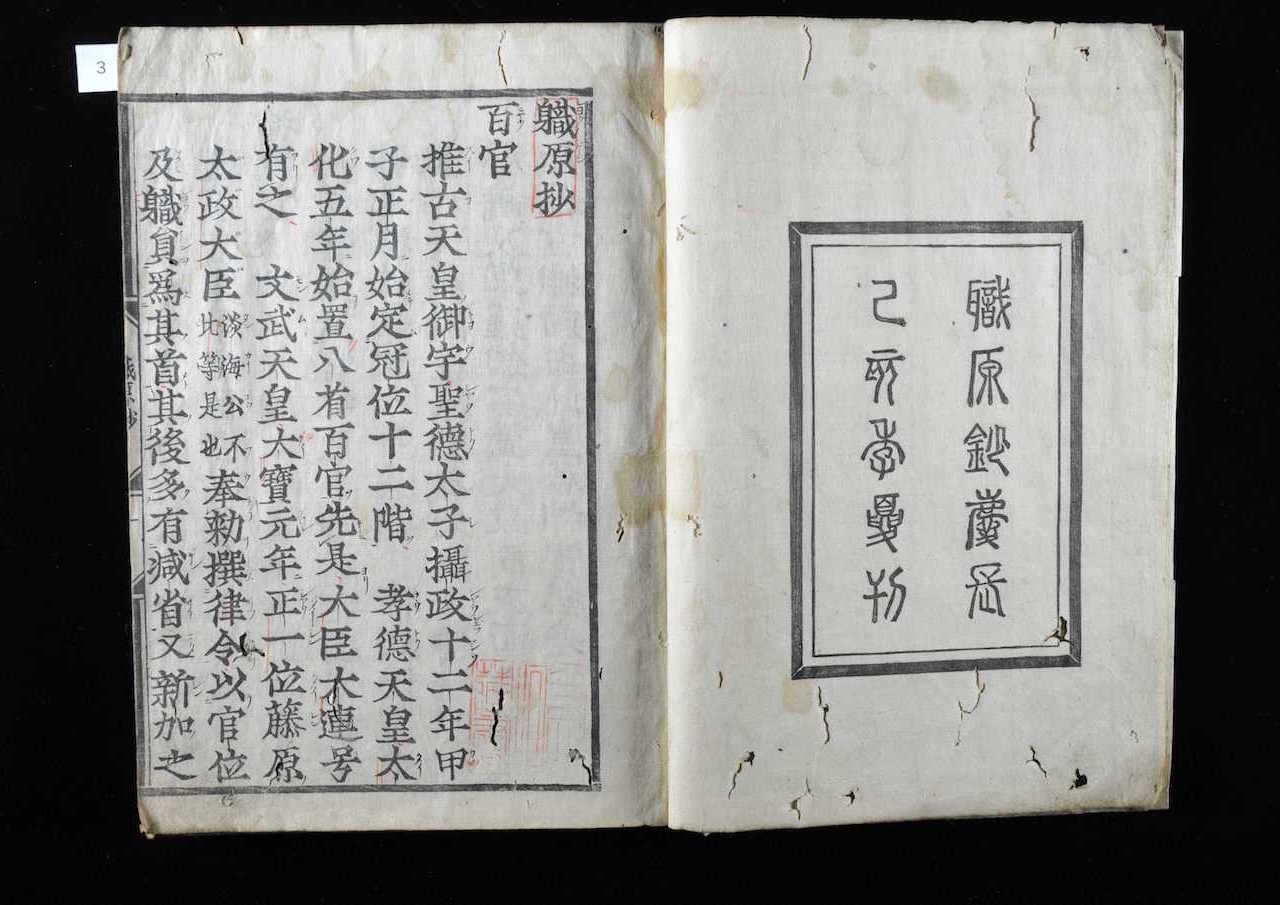 職原鈔慶長
己亥季夏刊
職原抄
百官
推古天皇御宇聖德太子攝政十二年甲
子正月始定冠位十二階 孝德天皇大
化五年始置八省百官先是大臣大連号
有之 文武天皇大寶元年正一位藤原
太政大臣淡海公不比等是也奉勅撰律令以官位
及職員爲其首其後多有减省又新加之
3